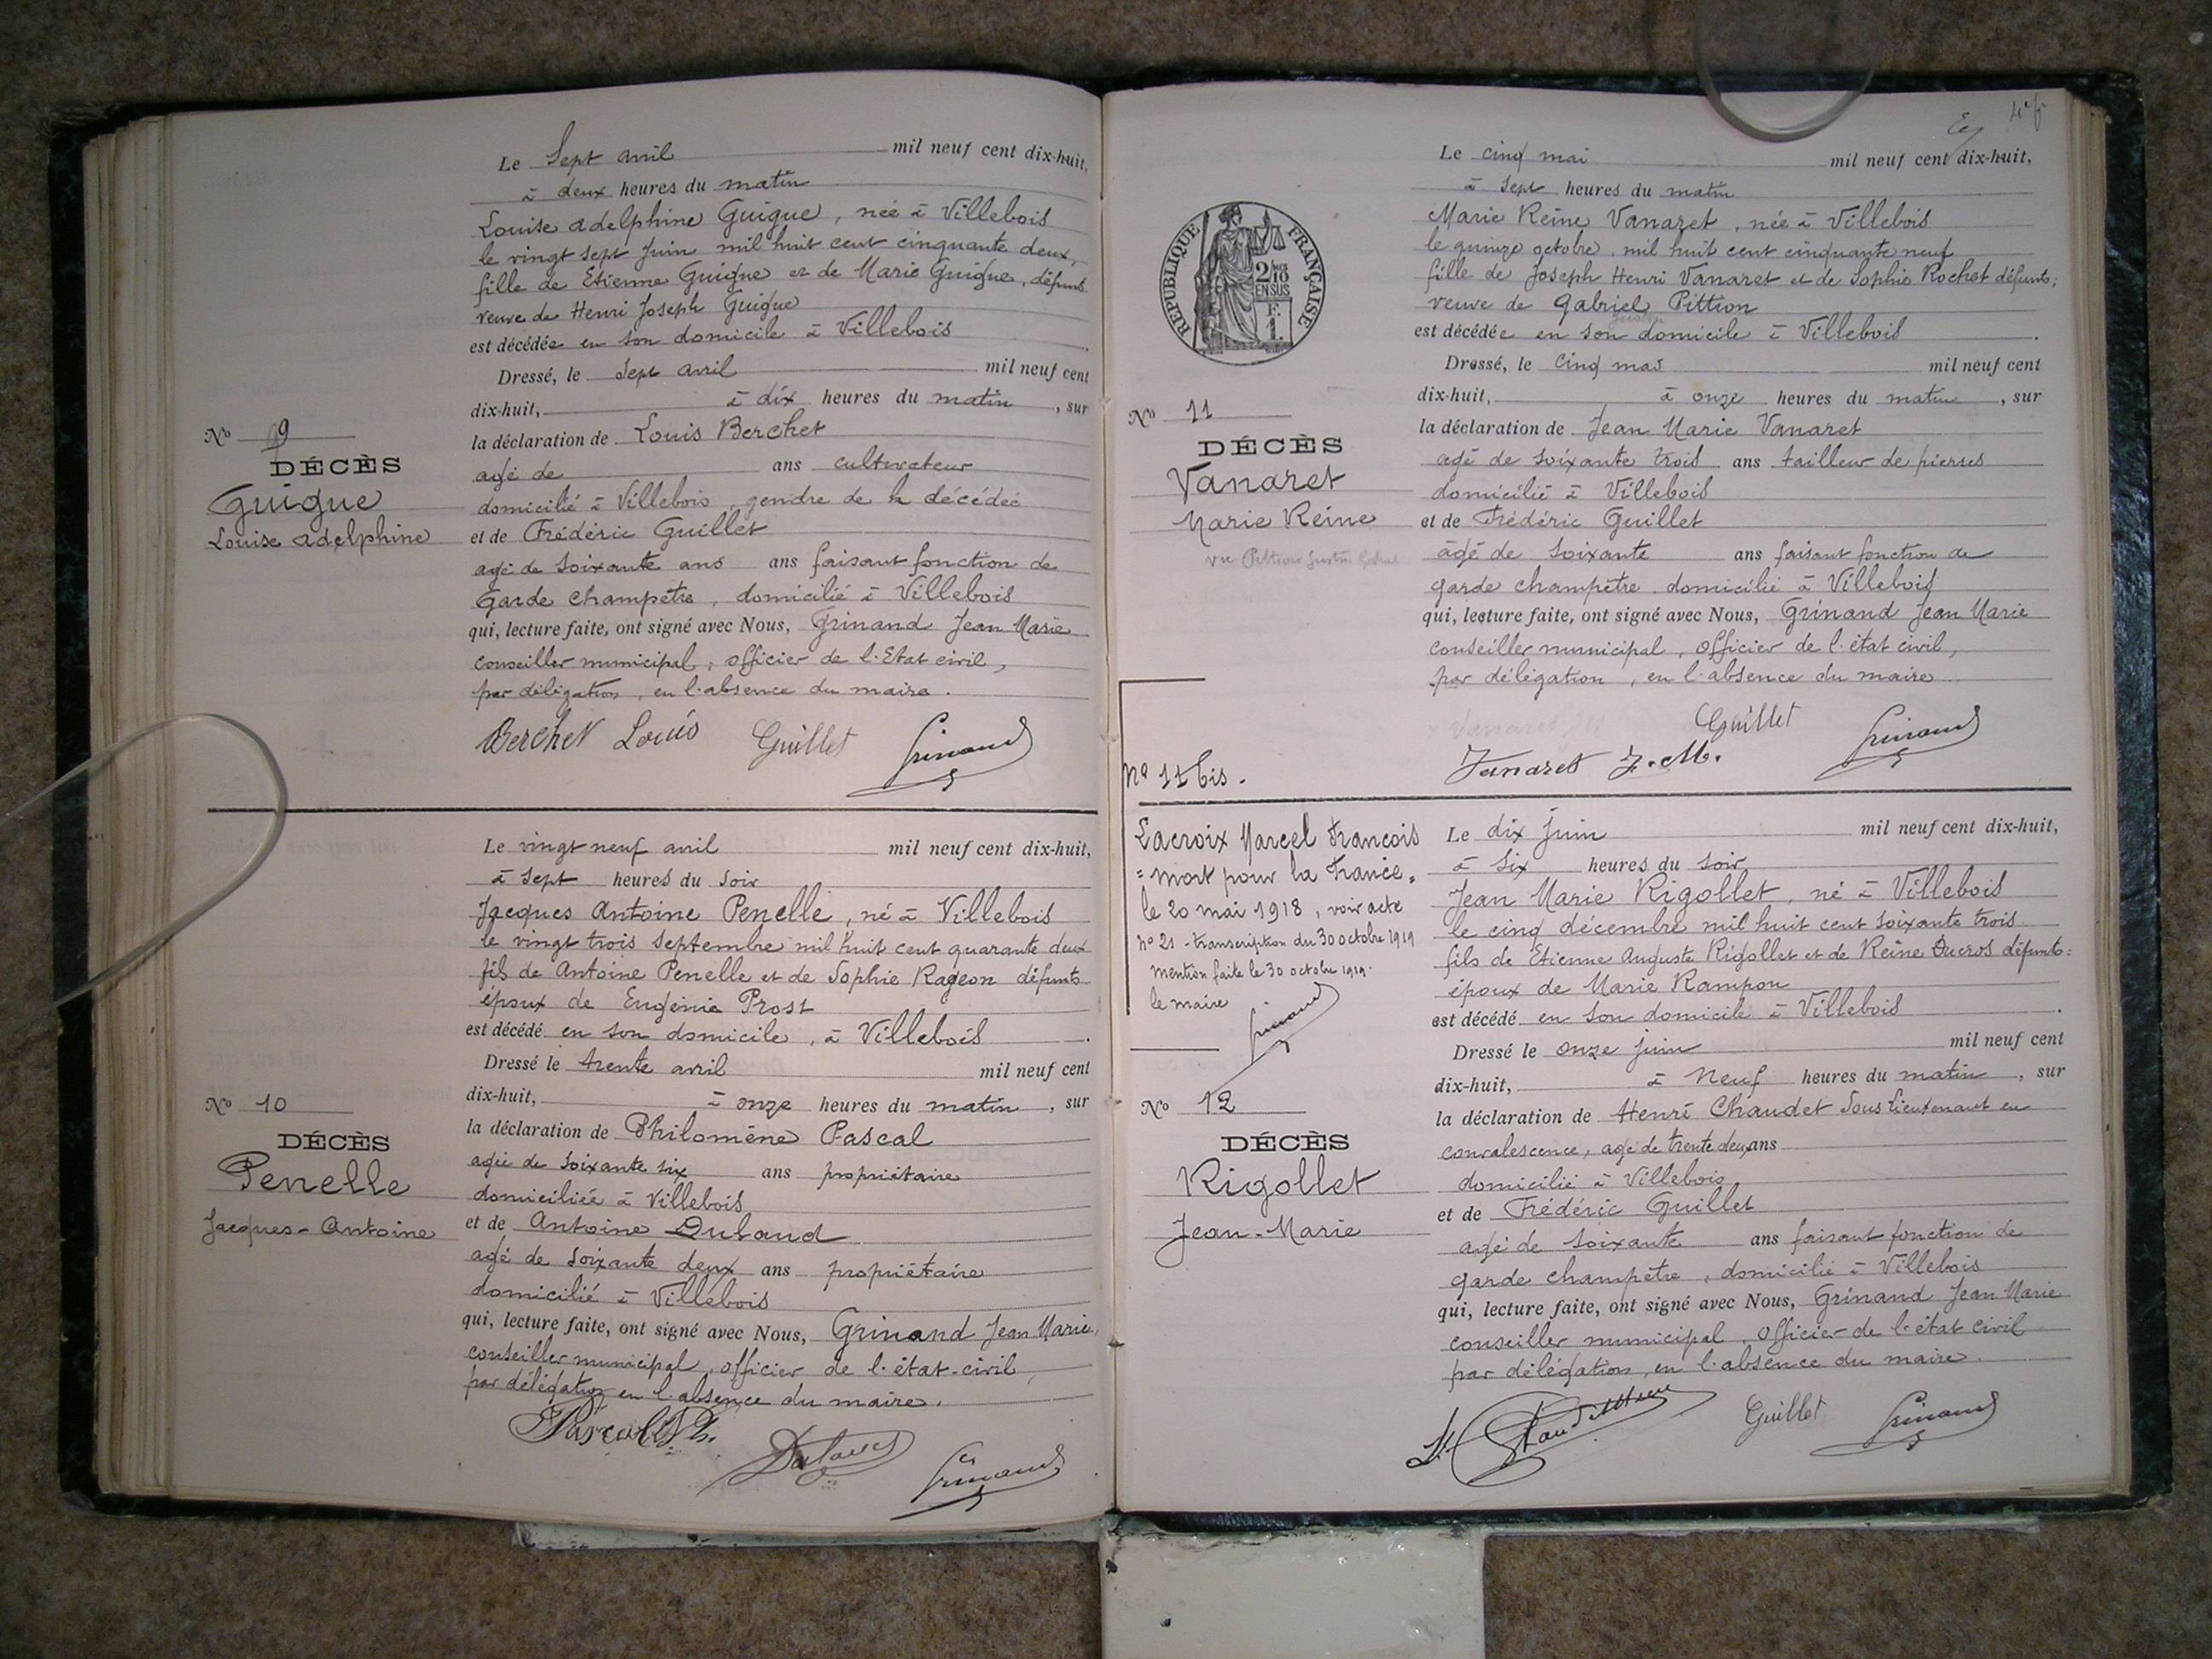 Le Sept avril mil neuf cent dix-huit,
à deux heures du matin
Louise Adelphine Guigue, née à Villebois
le vingt sept Juin mil huit cent cinquante deux,
fille de Etienne Guigue et de Marie Guigue, défunts
veuve de Henri Joseph Guigue
est décédée en son domicile à Villebois
Dressé, le Sept avril mil neuf cent
dix-huit, à dix heures du matin, sur
la déclaration de Louis Berchet
agé de ans cultivateur
domicilié à Villebois, gendre de la décédée
et de Frédéric Guillet
agé de soixante ans ans faisant fonction de
Garde champêtre, domicilié à Villebois
qui, lecture faite, ont signé avec Nous, Grinand Jean Marie
conseiller municipal, officier de l'Etat civil,
par délégation, en l'absence du maire.
Berchet Louis Guillet Grinand
No 9
DÉCÈS
Guigue
Louise Adelphine
Le vingt neuf avril mil neuf cent dix-huit,
à sept heures du soir
Jacques Antoine Penelle, né à Villebois
le vingt trois septembre mil huit cent quarante deux
fils de Antoine Penelle et de Sophie Rageon défunts
époux de Eugénie Prost
est décédé en son domicile, à Villebois
Dressé le trente avril mil neuf cent
dix-huit, à onze heures du matin, sur
la déclaration de Philomène Pascal
agée de soixante six ans propriétaire
domiciliée à Villebois
et de Antoine Dulaud
agé de soixante deux ans propriétaire
domicilié à Villebois
qui, lecture faite, ont signé avec Nous, Grinand Jean Marie,
conseiller municipal, officier de l'état-civil,
par délégation en l'absence du maire.
Pascal Ph. Dulaud Grinand
No 10
DÉCÈS
Penelle
Jacques-Antoine
RÉPUBLIQUE FRANÇAISE
2/10
EN SUS
F.
1.
Le cinq mai mil neuf cent dix-huit,
à sept heures du matin
Marie Reine Vanaret, née à Villebois
le quinze octobre mil huit cent cinquante neuf
fille de Joseph Henri Vanaret et de Sophie Rochet défunts,
veuve de Gabriel Pittion
est décédée en son domicile à Villebois
Dressé, le cinq mai mil neuf cent
dix-huit, à onze heures du matin, sur
la déclaration de Jean Marie Vanaret
agé de soixante trois ans tailleur de pierres
domicilié à Villebois
et de Frédéric Guillet
âgé de soixante ans faisant fonction de
garde champêtre domicilié à Villebois
qui, lecture faite, ont signé avec Nous, Grinand Jean Marie
conseiller municipal, officier de l'état civil,
par délégation, en l'absence du maire
Guillet Grinand
Vanaret J.-M.
No 11
DÉCÈS
Vanaret
Marie Reine
No 11 bis.
Lacroix Marcel Francois
"mort pour la France"
le 20 mai 1918, voir acte
no 21 - transcription du 30 octobre 1919
mention faite le 30 octobre 1919.
le maire
Grinand
Le dix Juin mil neuf cent dix-huit,
à six heures du soir
Jean Marie Rigollet, né à Villebois
le cinq décembre mil huit cent soixante trois
fils de Etienne Auguste Rigollet et de Reine Ducros défunts =
époux de Marie Rampon
est décédé en son domicile à Villebois
Dressé le onze juin mil neuf cent
dix-huit, à neuf heures du matin, sur
la déclaration de Henri Chaudet Sous Lieutenant en
convalescence, agé de trente deux ans
domicilié à Villebois
et de Frédéric Guillet
agé de soixante ans faisant fonction de
garde champêtre, domicilié à Villebois
qui, lecture faite, ont signé avec Nous, Grinand Jean Marie
conseiller municipal, officier de l'état civil
par délégation, en l'absence du maire
Guillet Grinand
No 12
DÉCÈS
Rigollet
Jean-Marie